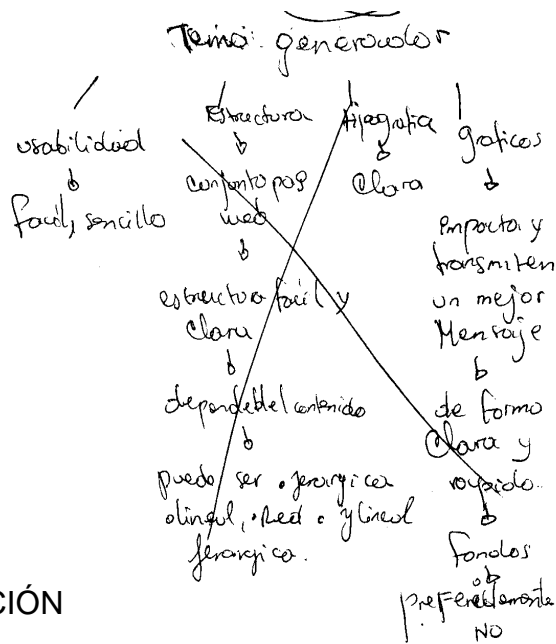 Tema: generador
usabilidad
facil, sencillo
Estructura
conjunto pag
web
estructura facil y
Clara
depende del contenido
puede ser . jerargica
o lineal, . Red . y lineal
jerargica.
tipografia
Clara
graficos
impacta y
transmiten
un mejor
Mensaje
de forma
Clara y
rapido.
fondos
preferiblemente
NO
CIÓN